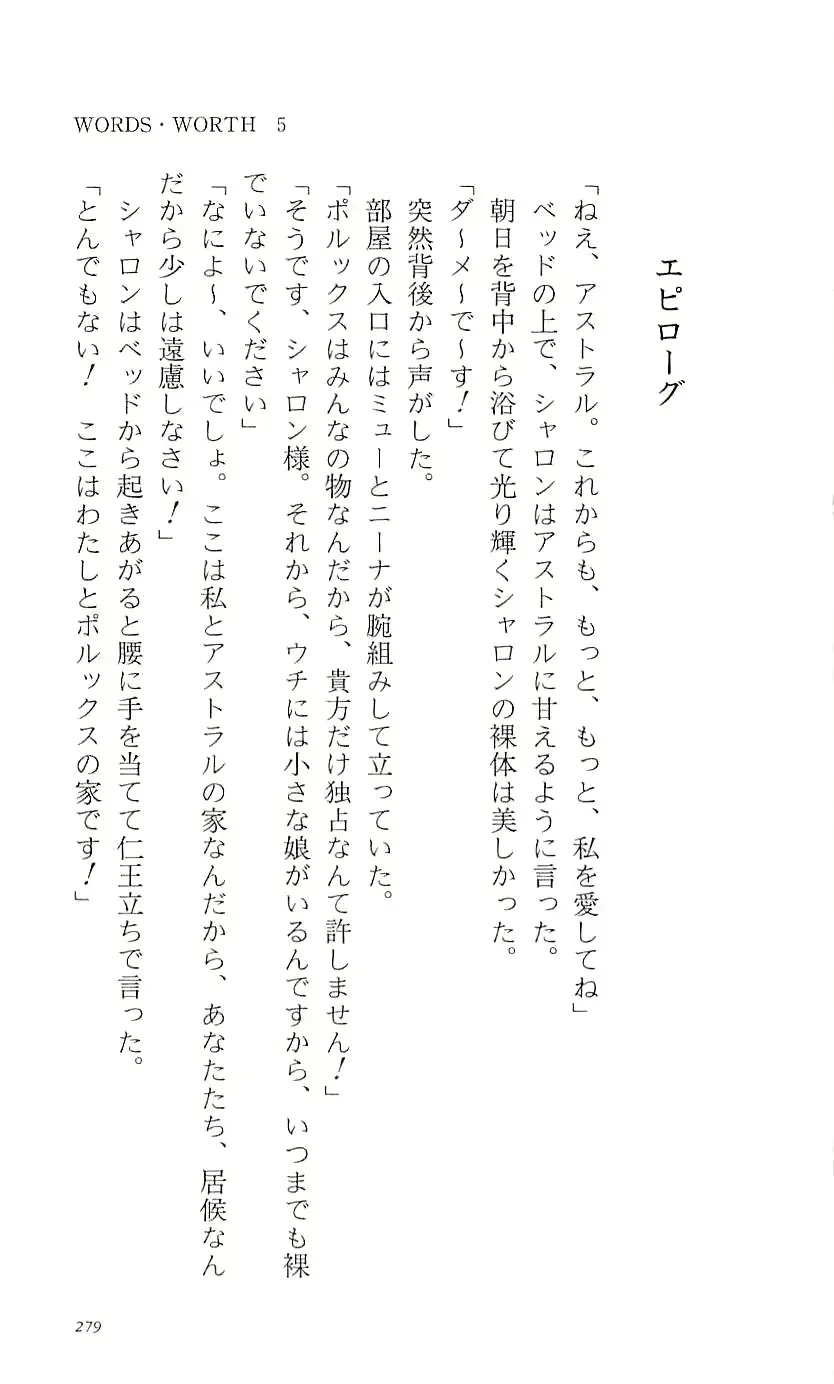 WORDS・WORTH 5
エピローグ
「ねえ、アストラル。これからも、もっと、もっと、私を愛してね」
ベッドの上で、シャロンはアストラルに甘えるように言った。
朝日を背中から浴びて光り輝くシャロンの裸体は美しかった。
「ダ〜メ〜で〜す！」
突然背後から声がした。
部屋の入口にはミューとニーナが腕組みして立っていた。
「ポルックスはみんなの物なんだから、貴方だけ独占なんて許しません！」
「そうです、シャロン様。それから、ウチには小さな娘がいるんですから、いつまでも裸
でいないでください」
「なによ〜、いいでしょ。ここは私とアストラルの家なんだから、あなたたち、居候なん
だから少しは遠慮しなさい！」
シャロンはベッドから起きあがると腰に手を当てて仁王立ちで言った。
「とんでもない！　ここはわたしとポルックスの家です！」
279